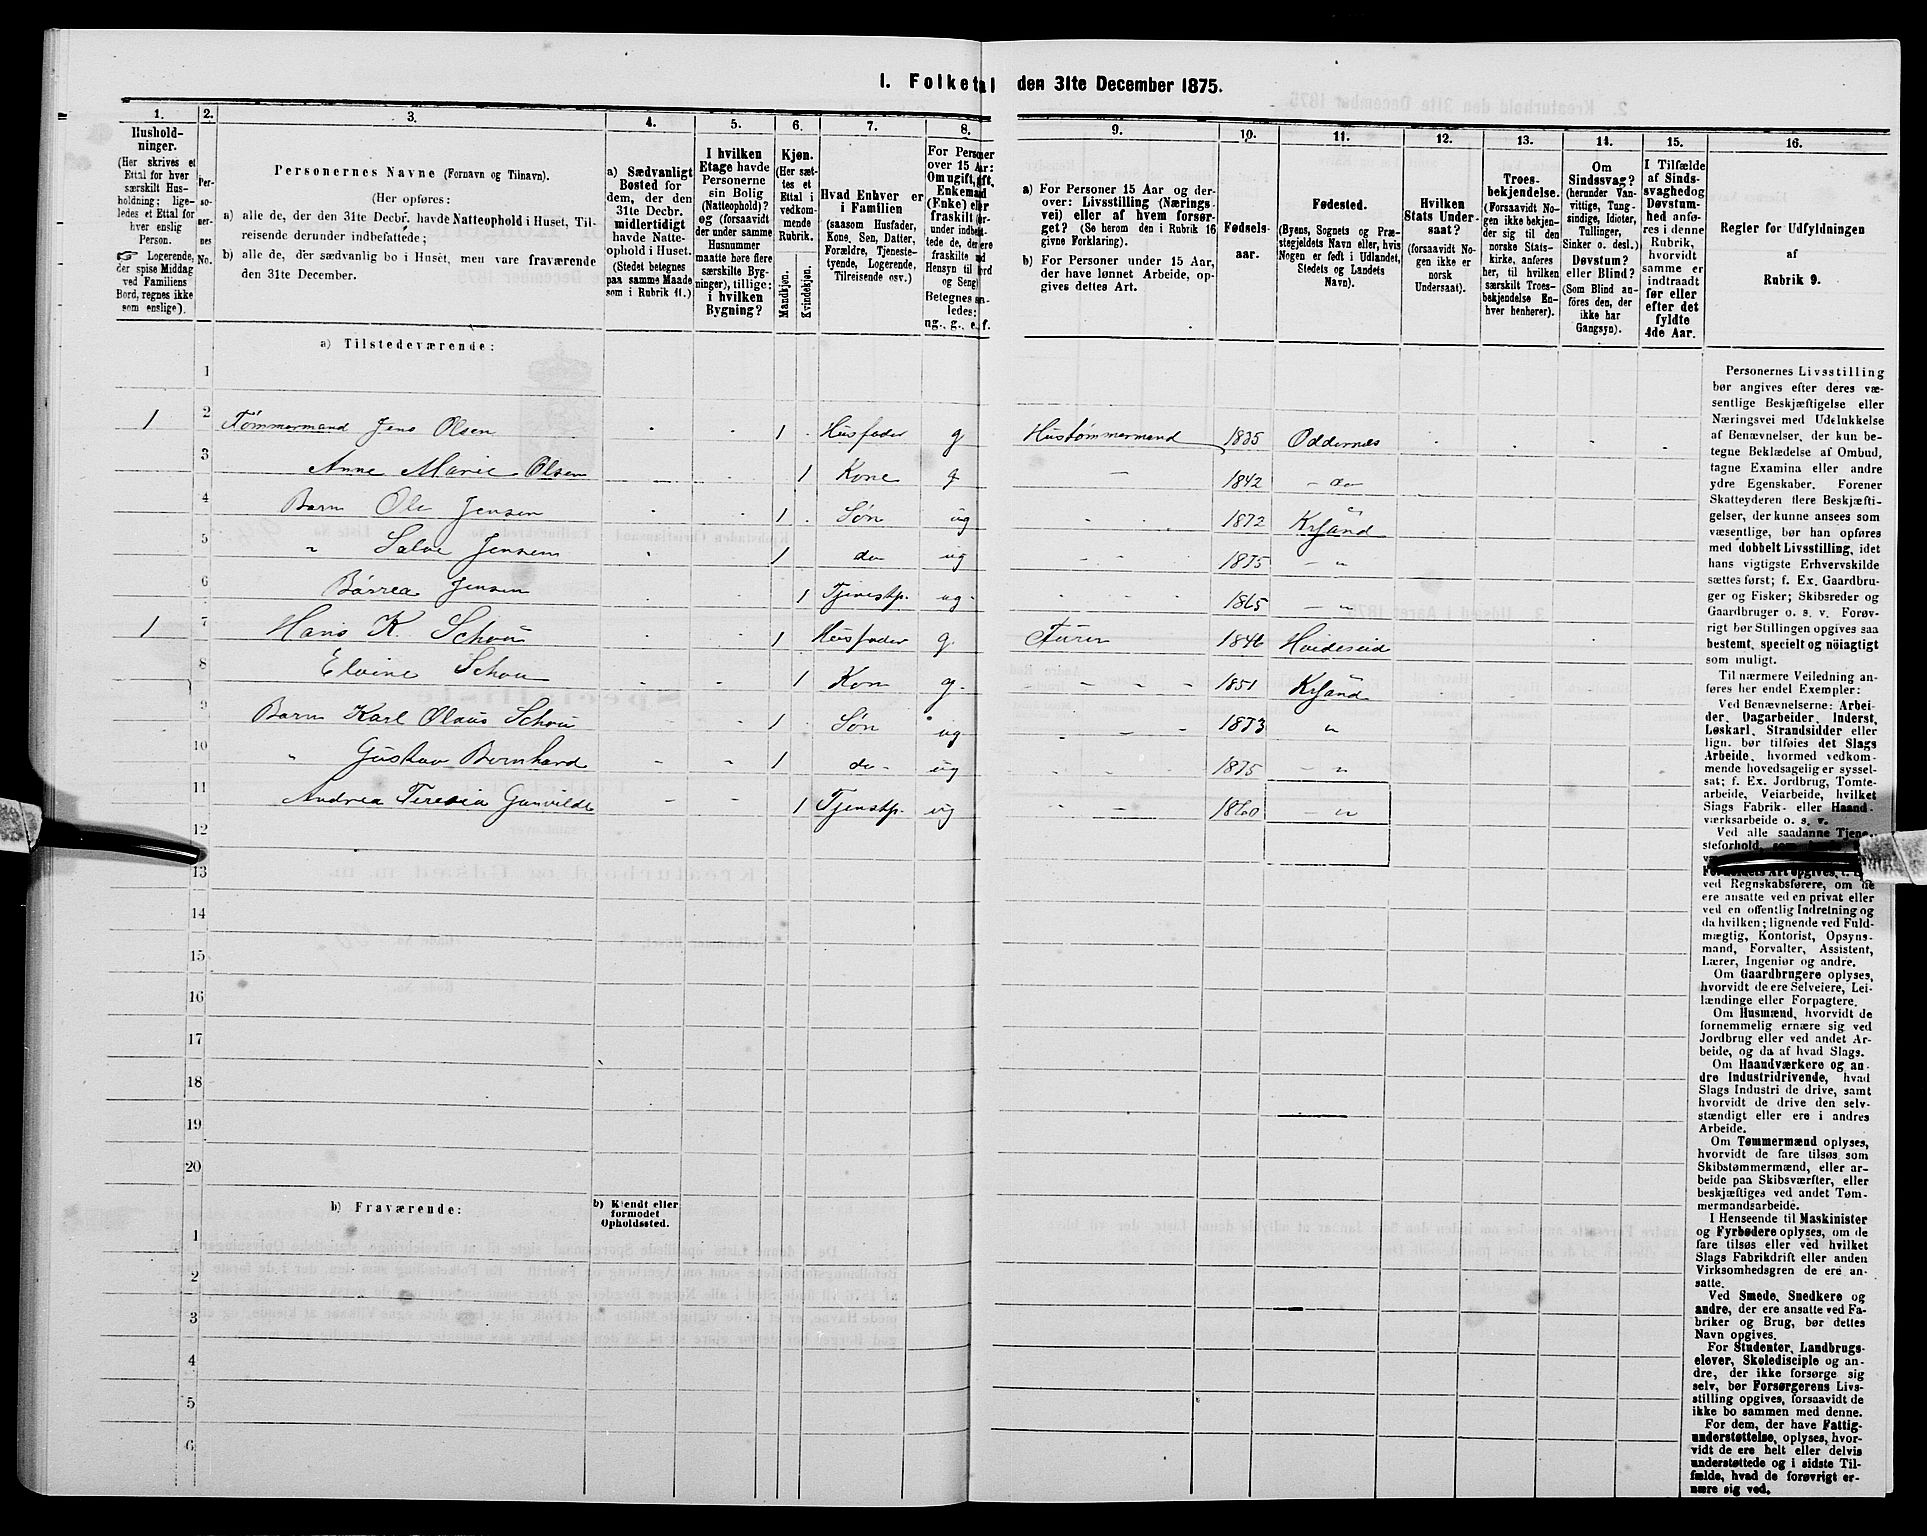 I. Folketal den 31te December 1875.
1. 2. 3. 4. 5. 6. 7. 8. 9. 10. 11. 12. 13. 14. 15. 16.
Husholdninger.
(Her skrives et
Ettal for hver
særskilt Husholdning;
ligeledes et Ettal for
hver enslig
Person.
☞ Logerende,
der spise Middag
ved Familiens
Bord, regnes ikke
som enslige).
Personernes No.
Personernes Navne (Fornavn og Tilnavn).
(Her opføres:
a) alle de, der den 31te Decbr. havde Natteophold i Huset, Tilreisende derunder indbefattede;
b) alle de, der sædvanlig bo i Huset, men vare fraværende
den 31te December.
a) Sædvanligt
Bosted for
dem, der den
31te Decbr.
midlertidigt
havde Natteophold i Huset.
(Stedet betegnes
paa samme Maade
som i Rubrik 11.)
I hvilken
Etage havde
Personerne
sin Bolig
(Natteophold)?
og (forsaavidt
der under samme
Husnummer
maatte høre flere
særskilte Bygninger), tillige:
i hvilken
Bygning?
Kjøn.
(Her sættes et
Ettal i
vedkommende
Rubrik.
Mandkjøn.
Kvindekjøn.
Hvad Enhver er
i Familien
(saasom Husfader,
Kone, Søn, Datter,
Forældre, Tjenestetyende, Logerende,
Tilreisende osv.)
For Personer
over 15 Aar:
Om ugift, gift,
Enkemand
(Enke) eller
fraskilt
Betegnes saaledes:
ug., g., e., f.
a) For Personer 15 Aar og derover: Livsstilling (Næringsvei) eller af hvem forsørget? (Se herom den i Rubrik 16
givne Forklaring).
b) For Personer under 15 Aar,
der have lønnet Arbeide, opgives dettes Art.
Fødselsaar.
Fødested.
(Byens, Sognets og Præstegjeldets Navn eller, hvis
Nogen er født i Udlandet,
Stedets og Landets
Navn).
Hvilken
Stats Undersaat?
(forsaavidt Nogen ikke er
norsk
Undersaat).
Troesbekjendelse.
(Forsaavidt Nogen ikke bekjender sig til den
norske Statskirke, anføres
her, til hvilken
særskilt Troesbekjendelse Enhver henhører).
Om
Sindssvag?
(herunder Vanvittige, Tungsindige, Idioter,
Tullinger,
Sinker o. desl.)
Døvstum?
eller Blind?
(Som Blind anføres den, der
ikke har
Gangsyn).
I Tilfælde
af Sindssvaghed og
Døvstumhed anføres i denne
Rubrik,
hvorvidt
samme er
indtraadt
før eller
efter det
fyldte
4de Aar.
Regler for Udfyldningen
af
Rubrik 9.
a) Tilstedeværende:
1
1 2 Tømmermand Jens Olsen 1 Husfader g Hustømmermand 1835 Oddernes
3 Anne Marie Olsen 1 Kone g 1842 do
4 Barn Ole Jensen 1 Søn ug 1872 Krsand
5 " Salve Jensen 1 do ug 1875 "
6 Jensen 1 Tjenestp. ug 1865 "
1 7 Hans K. Schou 1 Husfader g. 1846 Hvideseid
8 Elvine Schou 1 Kone g. 1851 Krsand
9 Barn Karl Olaus Schou 1 Søn ug 1873 "
10 " Gustav Bernhard 1 do ug 1875 "
11 Andrea Teresia Gunvilde 1 Tjenstp. ug 1860 "
12
13
14
15
16
17
18
19
20
b) Fraværende:
b) Kjendt eller
formodet
Opholdssted.
1
2
3
4
5
6
Personernes Livsstilling
bør angives efter deres væsentlige Beskjæftigelse eller
Næringsvei med Udelukkelse
af Benævnelser, der kun betegne Beklædelse af Ombud,
tagne Examina eller andre
ydre Egenskaber. Forener
Skatteyderen flere Beskjæftigelser, der kunne ansees som
væsentlige, bør han opføres
med dobbelt Livsstilling, idet
hans vigtigste Erhvervskilde
sættes først; f. Ex. Gaardbruger og Fisker; Skibsreder og
Gaardbruger o. s. v. Forøvrigt bør Stillingen opgives saa
bestemt, specielt og nöiagtigt
som muligt.
Til nærmere Veiledning anføres her endel Exempler:
Ved Benævnelserne: Arbeider, Dagarbeider, Inderst,
Løskarl, Strandsidder eller
lign. bør tilføies det Slags
Arbeide, hvormed vedkommende hovedsagelig er sysselsat; f. Ex. Jordbrug, Tomtearbeide, Veiarbeide, hvilket
Slags Fabrik- eller Haandværksarbeide o. s. v.
Ved alle saadanne Tjenesteforhold,
Forholdets Art opgives,
ved Regnskabsførere, om de
ere ansatte ved en privat eller
ved en offentlig Indretning og
da hvilken; lignende ved Fuldmægtig, Kontorist, Opsynsmand, Forvalter, Assistent,
Lærer, Ingeniør og andre.
Om Gaardbrugere oplyses,
hvorvidt de ere Selveiere, Leilændinge eller Forpagtere.
Om Husmænd, hvorvidt de
fornemmelig ernære sig ved
Jordbrug eller ved andet Arbeide, og da af hvad Slags.
Om Haandværkere og andre Industridrivende, hvad
Slags Industri de drive, samt
hvorvidt de drive den selvstændigt eller ere i andres
Arbeide.
Om Tømmermænd oplyses,
hvorvidt de fare tilsøs som
Skibstømmermænd, eller arbeide paa Skibsværfter, eller
beskjæftiges ved andet Tømmermandsarbeide.
I Henseende til Maskinister
og Fyrbødere oplyses, om de
fare tilsøs eller ved hvilket
Slags Fabrikdrift eller anden
Virksomhedsgren de ere ansatte.
Ved Smede, Snedkere og
andre, der ere ansatte ved Fabriker og Brug, bør dettes
Navn opgives.
For Studenter, Landbrugselever, Skoledisciple og andre, der ikke forsørge sig
selv, bør Forsørgerens Livsstilling opgives, forsaavidt de
ikke bo sammen med denne.
For dem, der have Fattigunderstøttelse, oplyses, hvorvidt de ere helt eller delvis
understøttede og i sidste Tilfælde, hvad de forøvrigt ernære sig ved.